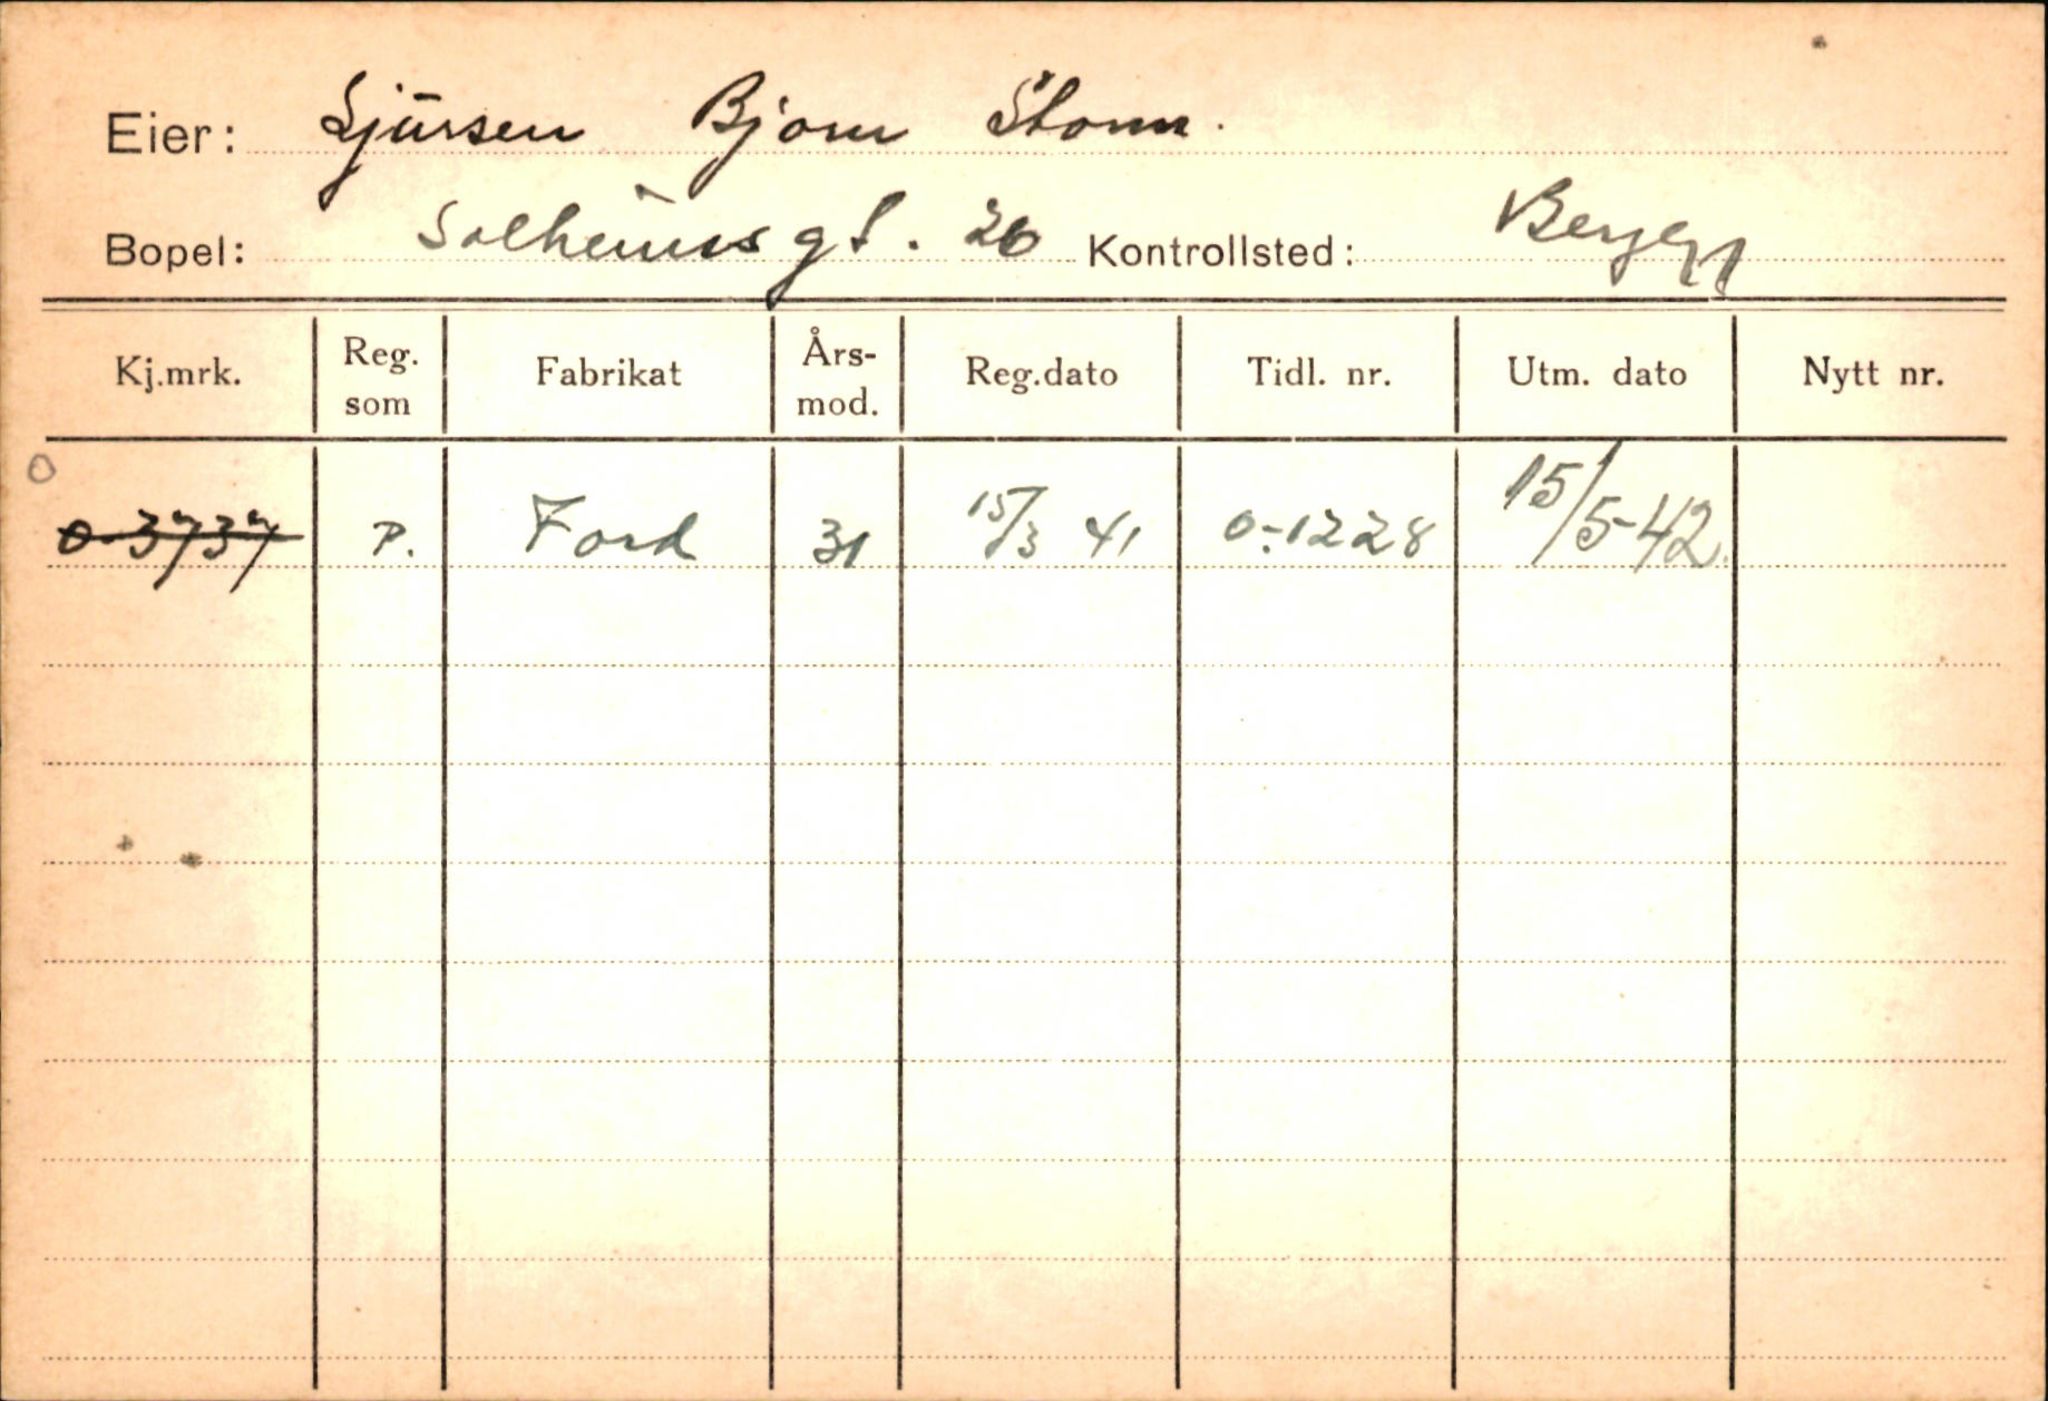 Eier: Sjursen Bjorn Storm.
Bopel: Solheimsgt. 26 Kontrollsted: Bergen
Kj.mrk. Reg. som Fabrikat Års-mod. Reg.dato Tidl. nr. Utm. dato Nytt nr.
O
O-3737 P. Ford 31 15/3 41 O-1228 15/5-42.